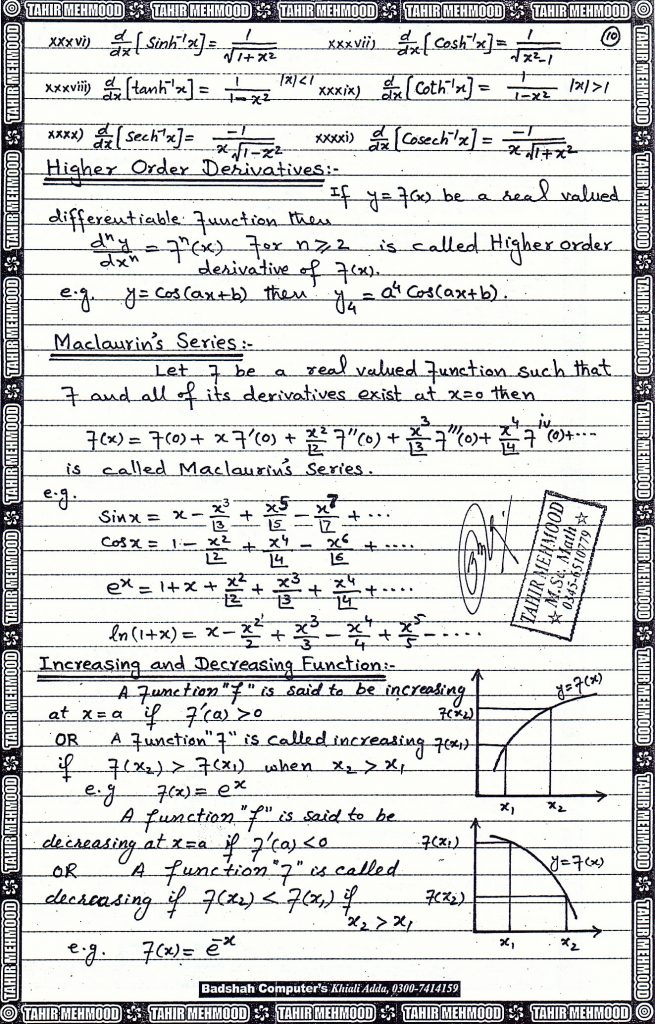 ◎ TAHIR MEHMOOD TAHIR MEHMOOD TAHIR MEHMOOD TAHIR MEHMOOD TAHIR MEHMOOD ◎
(10)
xxxvi) d/dx [Sinh⁻¹x] = 1/√(1+x²) xxxvii) d/dx [Cosh⁻¹x] = 1/√(x²-1)
xxxviii) d/dx [tanh⁻¹x] = 1/(1-x²) |x|<1 xxxix) d/dx [Coth⁻¹x] = 1/(1-x²) |x|>1
xxxx) d/dx [Sech⁻¹x] = -1/(x√(1-x²)) xxxxi) d/dx [Cosech⁻¹x] = -1/(x√(1+x²))
Higher Order Derivatives:-
If y = f(x) be a real valued
differentiable function then
dⁿy/dxⁿ = fⁿ(x) for n ≥ 2 is called Higher order
derivative of f(x).
e.g. y = Cos(ax+b) then y₄ = a⁴ Cos(ax+b).
Maclaurin's Series:-
Let f be a real valued function such that
f and all of its derivatives exist at x=0 then
f(x) = f(0) + x f'(0) + x²/|2 f''(0) + x³/|3 f'''(0) + x⁴/|4 f^iv(0) + ---
is called Maclaurin's Series.
e.g.
Sin x = x - x³/|3 + x⁵/|5 - x⁷/|7 + ...
Cos x = 1 - x²/|2 + x⁴/|4 - x⁶/|6 + ....
eˣ = 1 + x + x²/|2 + x³/|3 + x⁴/|4 + ....
ln(1+x) = x - x²/2 + x³/3 - x⁴/4 + x⁵/5 - .....
TAHIR MEHMOOD
☆ M.Sc. Math ☆
0345-6510779
Increasing and Decreasing Function:-
A function "f" is said to be increasing
at x = a if f'(a) > 0
OR A function "f" is called increasing
if f(x₂) > f(x₁) when x₂ > x₁
e.g f(x) = eˣ
y = f(x)
f(x₂)
f(x₁)
x₁ x₂
A function "f" is said to be
decreasing at x = a if f'(a) < 0
OR A function "f" is called
decreasing if f(x₂) < f(x₁) if
x₂ > x₁
e.g. f(x) = e⁻ˣ
f(x₁)
y = f(x)
f(x₂)
x₁ x₂
Badshah Computer's Khiali Adda, 0300-7414159
◎ TAHIR MEHMOOD TAHIR MEHMOOD TAHIR MEHMOOD TAHIR MEHMOOD TAHIR MEHMOOD ◎